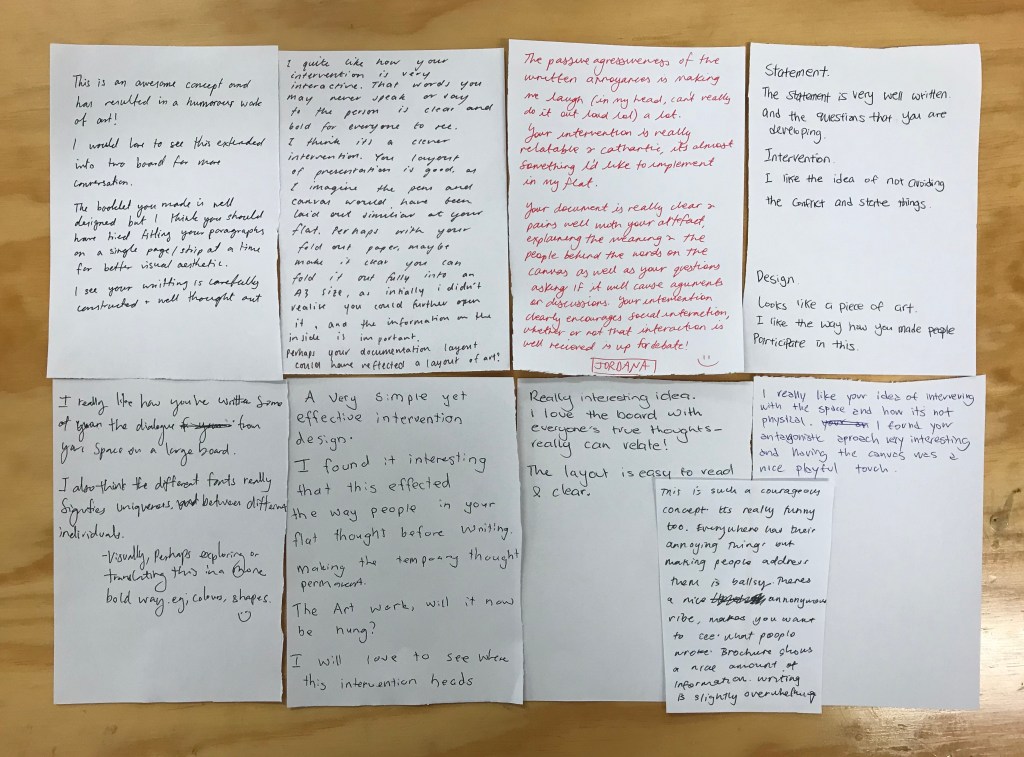 This is an awesome concept and
has resulted in a humorous wade
of art!
I would love to see this extended
into two board for more
conversation.
The booklet you made is well
designed but I think you should
have tried fitting your paragraphs
on a single page/strip at a time
for better visual aesthetic.
I see your writting is carefully
constructed + well thought out
I quite like how your
intervention is very
interactive. That words you
may never speak or say
to the person is clear and
bold for everyone to see.
I think its a clever
intervention. You layout
of presentation is good, as
I imagine the pens and
canvas would have been
laid out similiar at your
flat. Perhaps with your
fold out paper, maybe
make it clear you can
fold it out fully into an
A3 size, as intially i didn't
realise you could further open
it, and the information on the
inside is important.
Perhaps your documentation layout
could have reflected a layout of art?
The passive agressiveness of the
written annoyances is making
me laugh (in my head, can't really
do it out loud lol) a lot.
Your intervention is really
relatable & cathartic, its almost
something I'd like to implement
in my flat.
Your document is really clear &
pairs well with your artifact,
explaining the meaning & the
people behind the words on the
canvas as well as your questions
asking if it will cause aguments
or discussions. Your intervention
clearly encourages social interaction,
whether or not that interaction is
well recieved is up for debate!
JORDANA
Statement.
The statement is very well written.
and the questions that you are
developing.
Intervention.
I like the idea of not avoiding
the conflict and state things.
Design
Looks like a piece of art.
I like the way how you made people
Participate in this.
I really like how you've written some
of the dialogue from
your space on a large board.
I also think the different fonts really
signifies uniqueness, between different
individuals.
- Visually, Perhaps exploring or
translating this in a more
bold way. eg; colours, shapes.
A very simple yet
effective intervention
design.
I found it interesting
that this effected
the way people in your
flat thought before writing.
making the temporary thought
permanent.
The Art work, will it now
be hung?
I will love to see where
this intervention heads
Really interesting idea.
I love the board with
everyone's true thoughts -
really can relate!
The layout is easy to read
& clear.
This is such a courageous
concept Its really funny
too. Everywhere has their
annoying things but
making people address
them is ballsy. Theres
a nice annonymous
vibe, makes you want
to see what people
wrote. Brochure shows
a nice amount of
information. writing
is slightly overwhelming
I really like your idea of intervening
with the space and how its not
physical. I found your
antagonistic aproach very interesting
and having the canvas was a
nice playful touch.